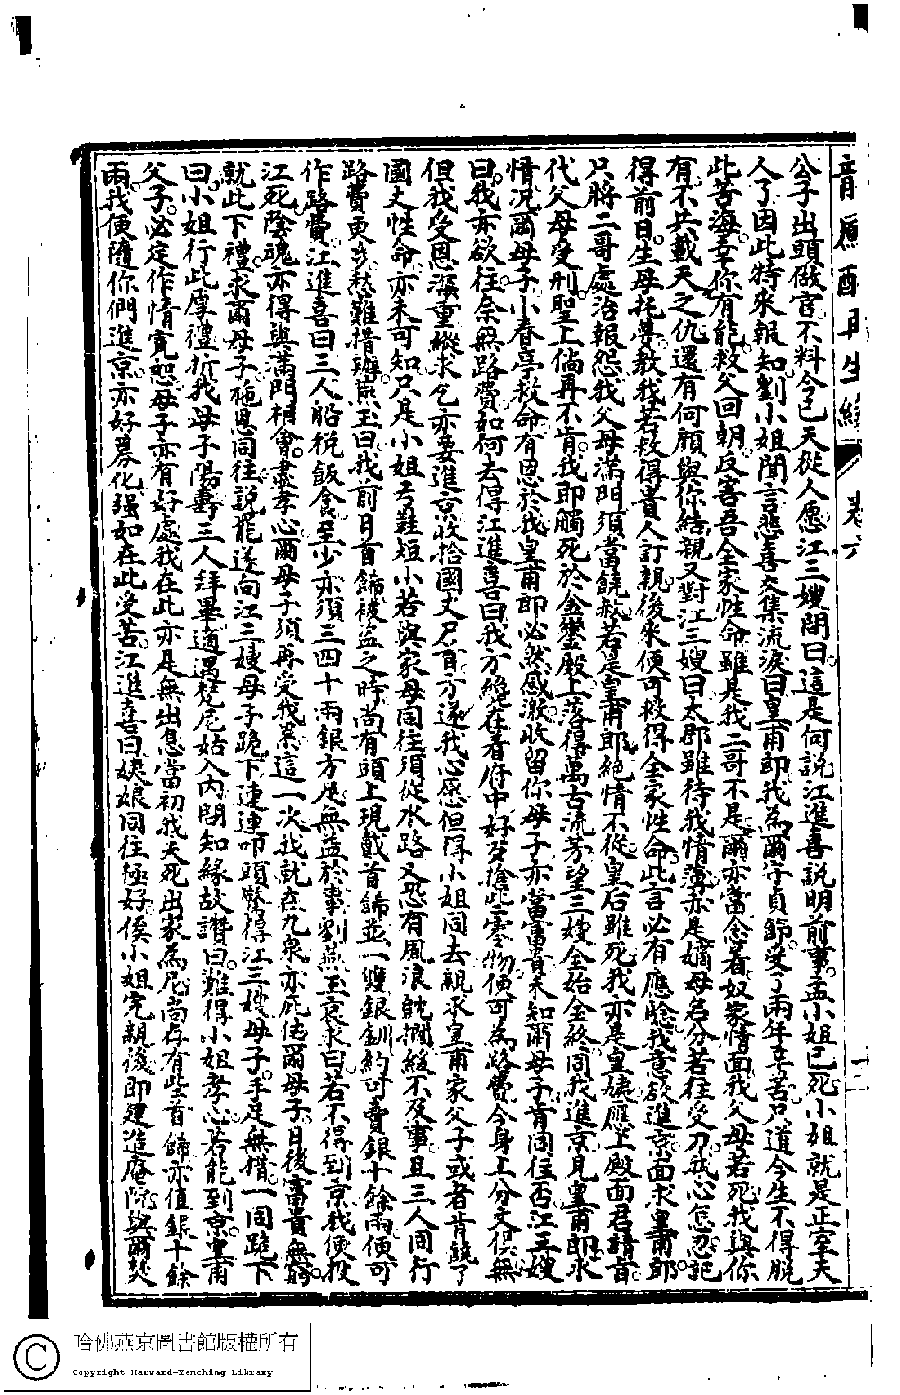 再生緣 卷六
公子出頭做官不料今已天從人愿江三嫂問曰這是何說江進喜說明前事孟小姐已死小姐就是正室夫
人了因此特來報知劉小姐聞言悲喜交集流淚曰皇甫郎我為爾守貞節受了兩年辛苦只道今生不得脫
此苦海幸你有能救父回朝反害吾全家性命雖是我二哥不是爾亦當念着奴家情面我父母若死我與你
有不共戴天之仇還有何顏與你結親又對江三嫂曰太郡雖待我情薄亦是嫡母名分若往受刀我心怎忍記
得前日生母托夢教我若救得貴人訂親後來便可救得全家性命此言必有應驗我意欲進京面求皇甫郎
只將二哥處治報怨我父母滿門須當饒赦若是皇甫郎絕情不從皇后雖死我亦是皇姨應上殿面君請旨
代父母受刑聖上倘再不肯我即觸死於金鑾殿上落得萬古流芳望三嫂全始全終同我進京見皇甫郎求
情況爾母子小春亭救命有恩於我皇甫郎必然感激收留你母子亦當富貴未知爾母子肯同往否江三嫂
曰我亦欲往奈無路費如何去得江進喜曰我万絕在着府中好歹搶些零物便可為路費今身上分文俱無
但我受恩深重縱求乞亦要進京收拾國丈尸首方遂我心愿但得小姐同去親求皇甫家父子或者肯饒了
國丈性命亦未可知只是小姐弓鞋短小若與家母同往須從水路又恐有風浪躭擱緩不及事且三人同行
路費更多愁難措辦燕玉曰我前日首飾被盜之時尚有頭上現戴首飾並一雙銀釧約可賣銀十餘兩便可
作路費江進喜曰三人船稅飯食至少亦須三四十兩銀方足無益於事劉燕玉哀求曰若不得到京我便投
江死陰魂亦得與滿門相會盡孝心爾母子須再受我累這一次我就在九泉亦庇佑爾母子日後富貴無窮
就此下禮求爾母子施恩同往說罷遂向江三嫂母子跪下連連叩頭驚得江三嫂母子手足無措一同跪下
曰小姐行此厚禮折我母子陽壽三人拜畢適遇梵尼姑入內問知緣故讚曰難得小姐孝心若能到京皇甫
父子必定作情寬恕母子亦有好處我在此亦是無出息當初我夫死出家為尼尚存有些首飾亦值銀十餘
兩我便隨你們進京亦好募化强如在此受苦江進喜曰姨娘同往極好俟小姐完親後即建造庵院與爾焚
哈佛燕京圖書館版權所有
Copyright Harvard-Yenching Library